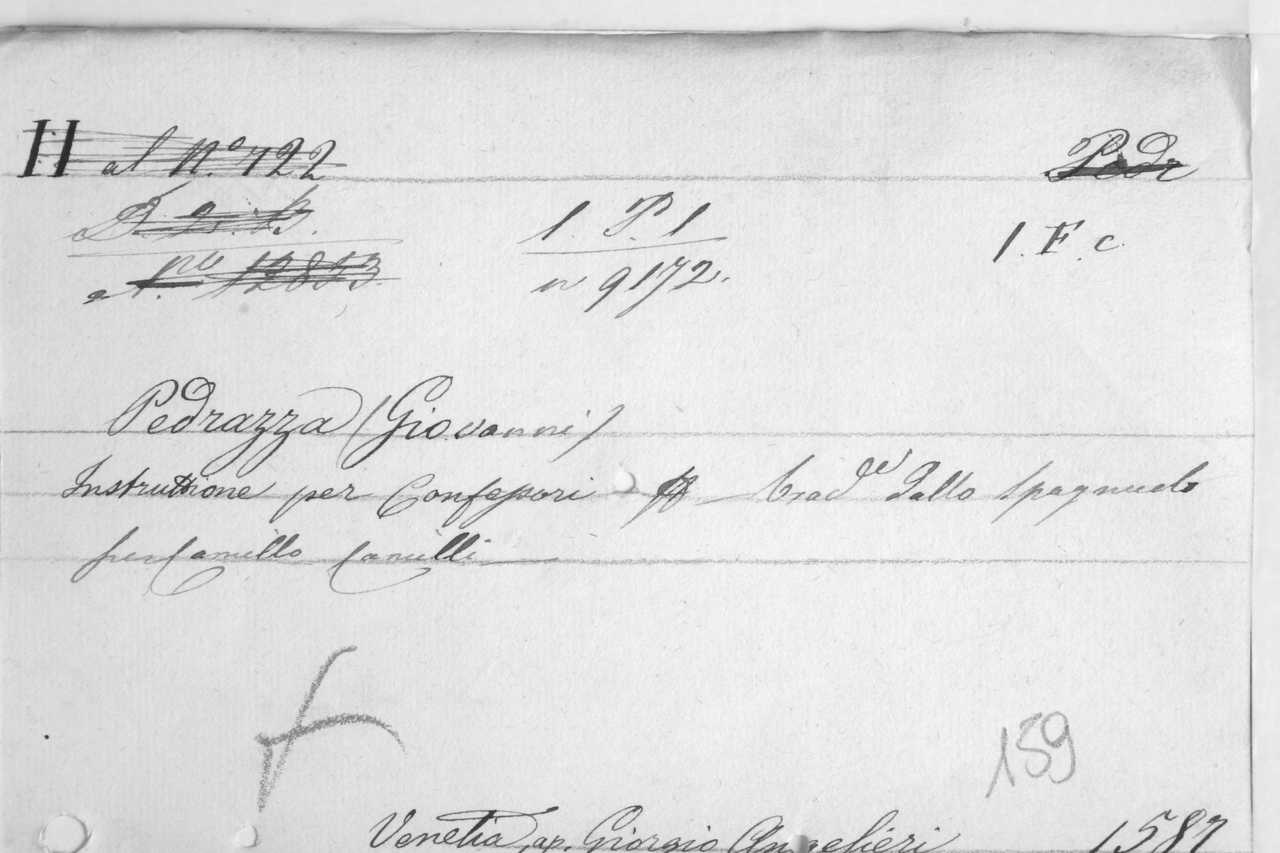 H al N.º 722 Pedr
D. 2. B. 1. P. 1 1. F. c.
n 9172.
Pedrazza (Giovanni)
Instruttione per Confessori trad.ta dallo Spagnuolo
per Camillo Camilli
139
Venetia, ap. Giorgio Angelieri 1587